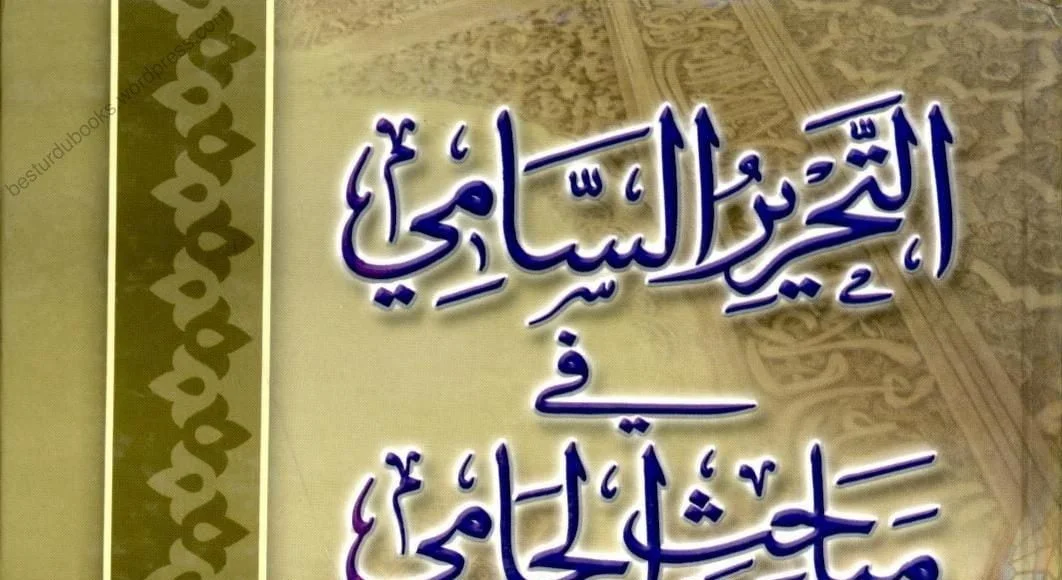 besturdubooks.wordpress.com
التَّحْرِيرُ السَّامِي
في
مباحث الجامي